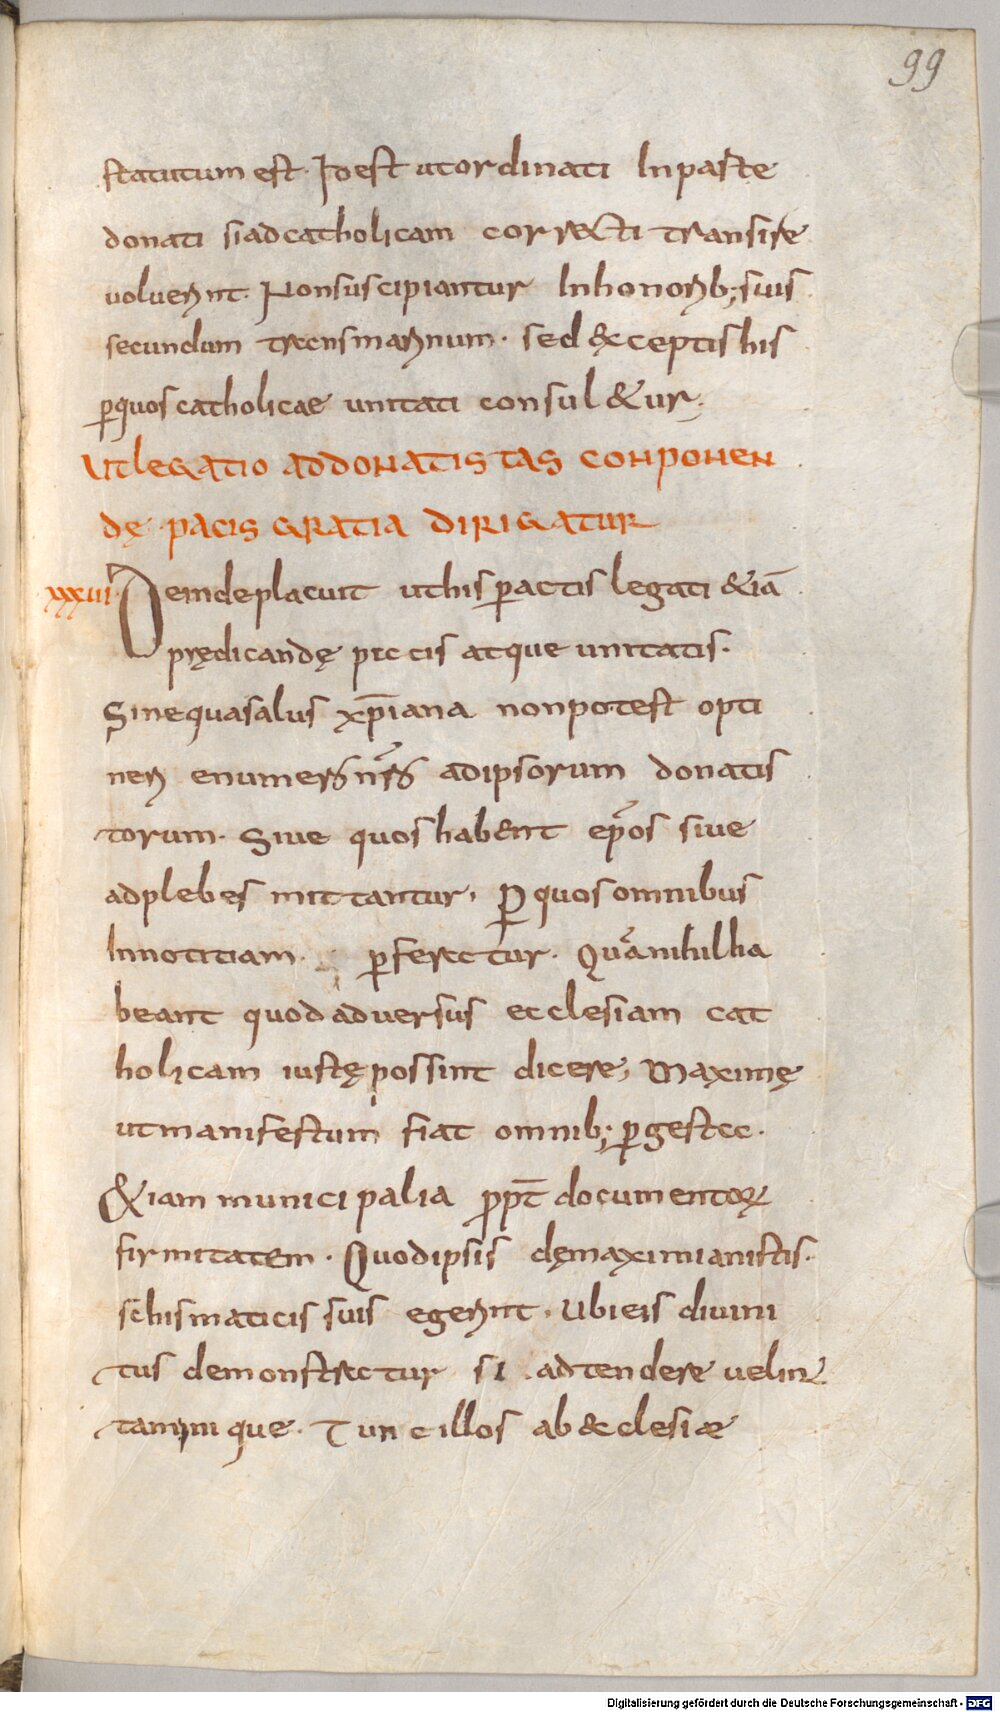 99
statutum est. Idest utordinati Inparte
donati siadcatholicam correcti transire
uoluerint. Nonsuscipiantur Inhonorib; suis
secundum transmarinum. sed &ceptis his
ꝑquos catholicae unitati consul&ur.
UTLEGATIO ADDONATISTAS CONPONEN
DĘ PACIS GRATIA DIRIGATUR
xxxvi Deindeplacuit uthis ꝑactis legati &iā
prędicandę pacis atque unitatis.
Sinequasalus xp̄iana nonpotest opti
neri enumero nr̄o adipsorum donatis
torum. Siue quos habent ep̄os siue
adplebes mittantur. Ꝑ quos omnibus
Innotitiam ꝑferatur. Quā nihil ha
beant quod aduersus ecclesiam cat
holicam iustę possint dicere, Maximę
utmanifestum fiat omnib; ꝑ gesta.
&iam municipalia ꝓpt̄ documentoꝝ
firmitatem. Quodipsis dęmaximianistis.
schismaticis suis egerint. Ubi eis diuini
tus demonstratur si adtendere uelint
tam inique. Tunc illos ab &clesiae
Digitalisierung gefördert durch die Deutsche Forschungsgemeinschaft - DFG